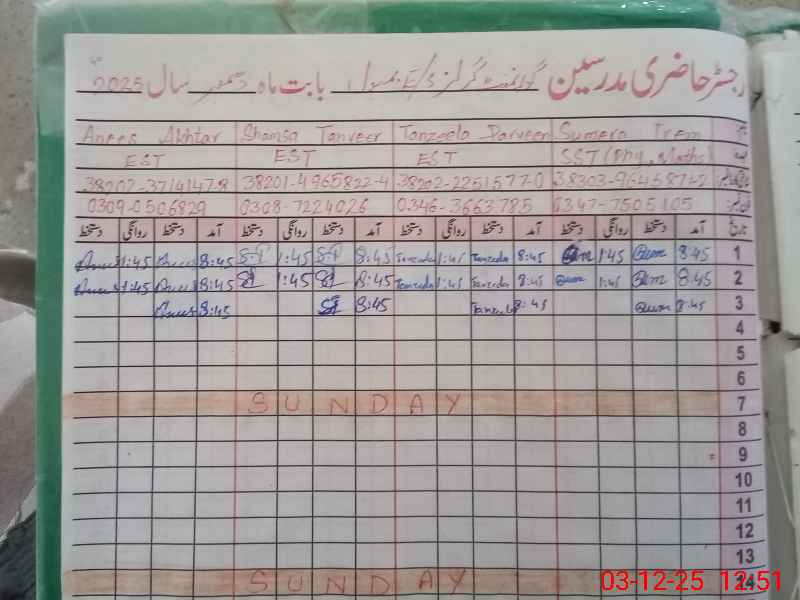 رجسٹر حاضری مدرسین گورنمنٹ گرلز بابت ماہ دسمبر سال 2025
Anees Akhtar Shamsa Tanveer Tanzeela Parveen Sumera Irem
EST EST EST SST (Phy, Maths)
38202-3714147-8 38201-4965822-4 38202-2251577-0 38303-9645871-2
0309-0506829 0308-7224026 0346-3663785 0347-7505105
تاریخ آمد دستخط روانگی دستخط آمد دستخط روانگی دستخط آمد دستخط روانگی دستخط آمد دستخط روانگی دستخط
Anees 1:45 Anees 8:45 1:45 8:45 Tanzeela 1:45 Tanzeela 8:45 1:45 8:45 1
Anees 1:45 Anees 8:45 1:45 8:45 Tanzeela 1:45 Tanzeela 8:45 1:45 8:45 2
Anees 8:45 8:45 Tanzeela 8:45 8:45 3
4
5
6
SUNDAY 7
8
9
10
11
12
13
SUNDAY 14
03-12-25 12:51